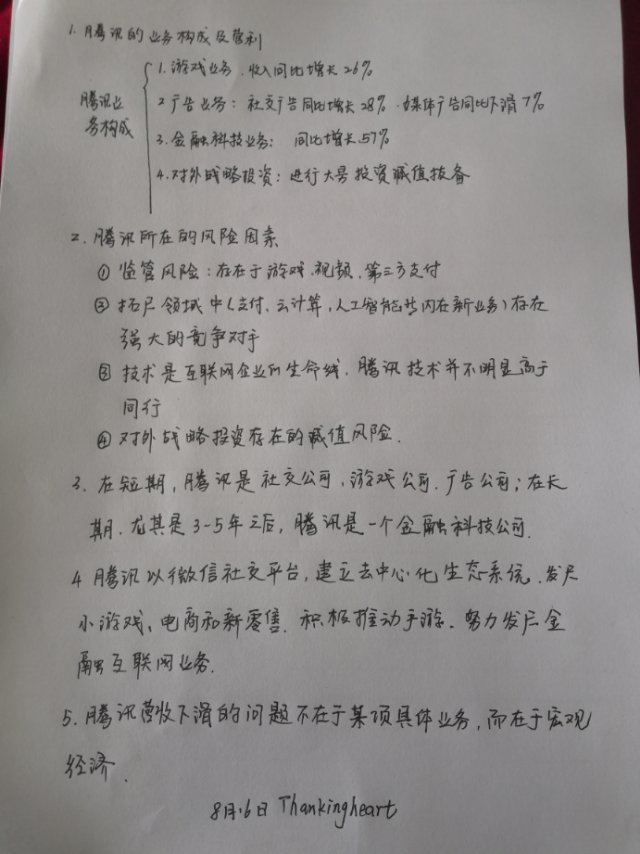 1. 腾讯的业务构成及营利
腾讯业务构成
1. 游戏业务、收入同比增长26%
2 广告业务：社交广告同比增长28%、媒体广告同比下滑7%
3. 金融科技业务：同比增长57%
4. 对外战略投资：进行大量投资减值技备
2. 腾讯所在的风险因素
① 监管风险：存在于游戏、视频、第三方支付
② 拓展领域中(支付、云计算，人工智能其内在新业务)存在
强大的竞争对手
③ 技术是互联网企业的生命线，腾讯技术并不明显高于
同行
④ 对外战略投资存在的减值风险.
3. 在短期，腾讯是社交公司、游戏公司、广告公司；在长
期、尤其是3-5年之后，腾讯是一个金融科技公司.
4 腾讯以微信社交平台，建立去中心化生态系统、发展
小游戏、电商和新零售、积极推动手游、努力发展金
融互联网业务.
5. 腾讯营收下滑的问题不在于某项具体业务，而在于宏观
经济.
8月16日 Thankingheart